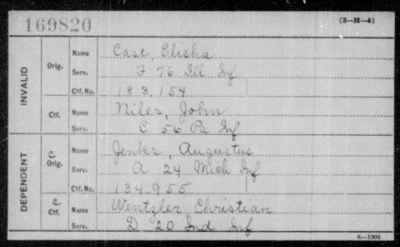 169820
(3-H-4)
INVALID
Orig.
Name Case, Elisha
Serv. F 76 Ill Inf
Ctf. No. 183,154
Ctf.
Name Niles, John
Serv. C 56 Pa Inf
DEPENDENT
C Orig.
Name Jenks, Augustus
Serv. A 24 Mich Inf
Ctf. No. 134,955
C Ctf.
Name Wentzler Christian
Serv. D 20 Ind Inf
6-1905